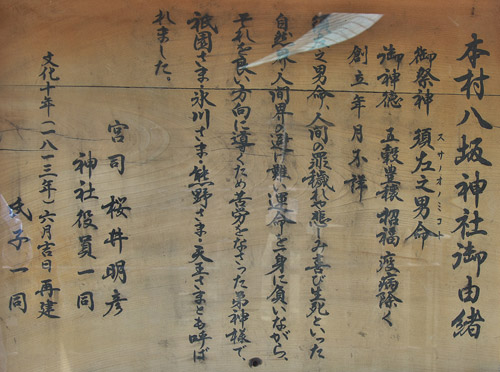 本村八坂神社御由緒
スサノオノミコト
御祭神 須左之男命
御神徳 五穀豊穣 招福 疫病除く
創立年月不詳
之男命、人間の罪穢れ悲しみ喜び生死といった
自然界、人間界の避け難い運命を身に負いながら、
それを良い方向に導くため苦労をなさった御神様で、
祇園さま・氷川さま・熊野さま・天王さまとも呼ば
れました。
宮司 桜井明彦
神社役員一同
文化十年(一八一三年)六月吉日再建
氏子一同